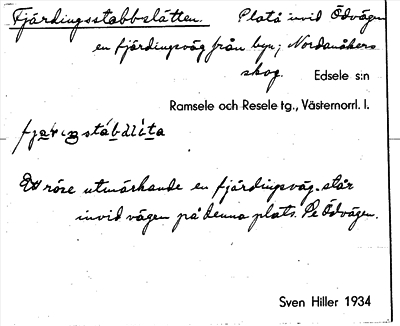 Fjärdingsstabbslåtten. Platå invid Ödvägen
en fjärdingsväg från byn; Nordanåkers
skog. Edsele s:n
Ramsele och Resele tg., Västernorrl. l.
Ett röse utmärkande en fjärdingsväg står
invid vägen på denna plats. Se Ödvägen.
Sven Hiller 1934